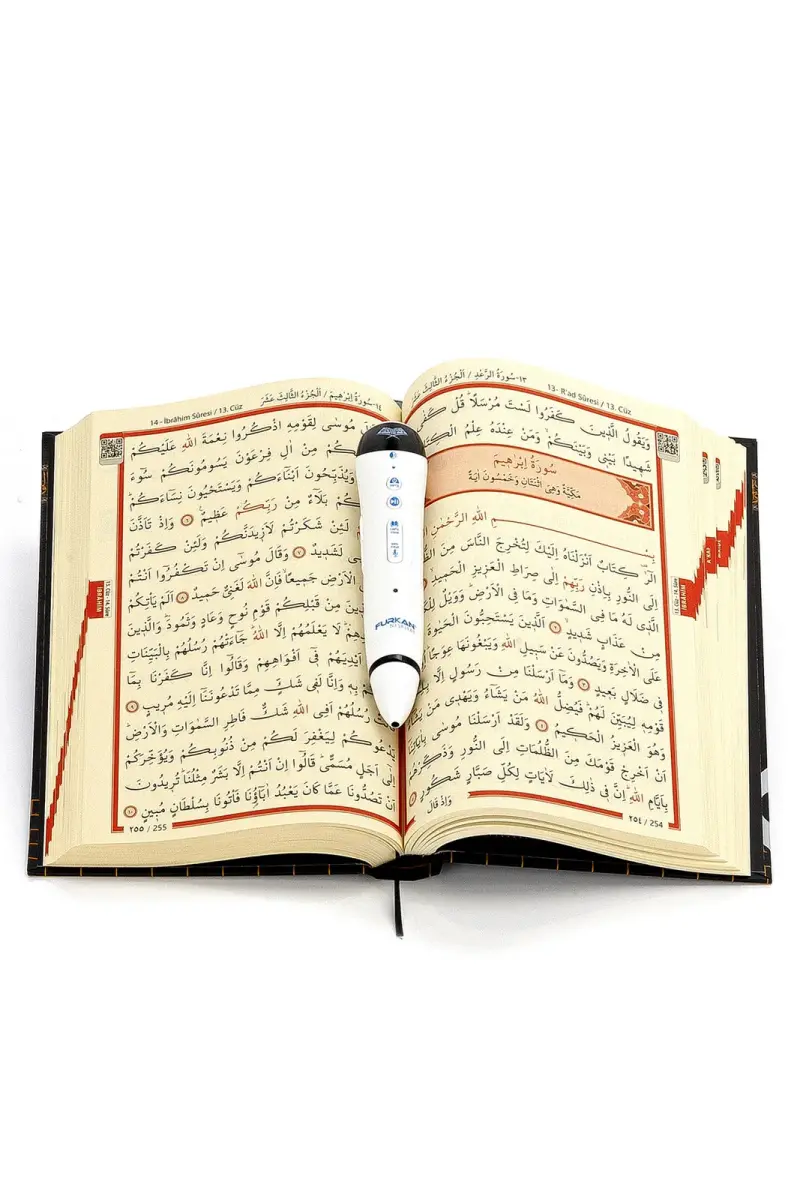 ١٣-سُورَةُ الرَّعْدِ / اَلْجُزْءُ الثَّالِثَ عَشَرَ
13- R'ad Sûresi / 13. Cüz
وَيَقُولُ الَّذِينَ كَفَرُوا لَسْتَ مُرْسَلًا قُلْ كَفٰى
شَهِيدًا بَيْنِي وَبَيْنَكُمْ وَمَنْ عِنْدَهُ عِلْمُ الْكِتَابِ
سُورَةُ اِبْرٰهِيمَ
مَكِّيَّةٌ وَهِيَ اثْنَتَانِ وَخَمْسُونَ اٰيَةً
بِسْمِ اللهِ الرَّحْمٰنِ
الٓرٰ كِتَابٌ اَنْزَلْنَاهُ اِلَيْكَ لِتُخْرِجَ النَّاسَ مِنَ
اِلَى النُّورِ بِاِذْنِ رَبِّهِمْ اِلٰى صِرَاطِ الْعَزِيزِ الْحَمِيدِ
الَّذِي لَهُ مَا فِي السَّمٰوَاتِ وَمَا فِي الْاَرْضِ وَوَيْلٌ
مِنْ عَذَابٍ شَدِيدٍ ٢ اَلَّذِينَ يَسْتَحِبُّونَ الْحَيٰوةَ
عَلَى الْاٰخِرَةِ وَيَصُدُّونَ عَنْ سَبِيلِ اللهِ وَيَبْغُونَهَا عِوَجًا
فِي ضَلَالٍ بَعِيدٍ ٣ وَمَا اَرْسَلْنَا مِنْ رَسُولٍ اِلَّا
قَوْمِهِ لِيُبَيِّنَ لَهُمْ فَيُضِلُّ اللهُ مَنْ يَشَاءُ وَيَهْدِي مَنْ يَشَاءُ
وَهُوَ الْعَزِيزُ الْحَكِيمُ ٤ وَلَقَدْ اَرْسَلْنَا مُوسٰى بِاٰيَاتِنَا
اَنْ اَخْرِجْ قَوْمَكَ مِنَ الظُّلُمَاتِ اِلَى النُّورِ وَذَكِّرْهُمْ
بِاَيَّامِ اللهِ اِنَّ فِي ذٰلِكَ لَاٰيَاتٍ لِكُلِّ صَبَّارٍ شَكُورٍ ٥
وَاِذْ قَالَ
٢٥٤ / 254
İBRAHİM
١٤-سُورَةُ اِبْرٰهِيمَ / اَلْجُزْءُ الثَّالِثَ عَشَرَ
14 - İbrâhim Sûresi / 13. Cüz
مُوسٰى لِقَوْمِهِ اذْكُرُوا نِعْمَةَ اللهِ عَلَيْكُمْ
مِنْ اٰلِ فِرْعَوْنَ يَسُومُونَكُمْ سُوءَ
وَيُذَبِّحُونَ اَبْنَاءَكُمْ وَيَسْتَحْيُونَ نِسَاءَكُمْ
بَلَاءٌ مِنْ رَبِّكُمْ عَظِيمٌ ٦ وَاِذْ تَاَذَّنَ
لَئِنْ شَكَرْتُمْ لَاَزِيدَنَّكُمْ وَلَئِنْ كَفَرْتُمْ
لَشَدِيدٌ ٧ وَقَالَ مُوسٰى اِنْ تَكْفُرُوا اَنْتُمْ
الْاَرْضِ جَمِيعًا فَاِنَّ اللهَ لَغَنِيٌّ حَمِيدٌ ٨ اَلَمْ يَاْتِكُمْ
مِنْ قَبْلِكُمْ قَوْمِ نُوحٍ وَعَادٍ وَثَمُودَ وَالَّذِينَ
لَا يَعْلَمُهُمْ اِلَّا اللهُ جَاءَتْهُمْ رُسُلُهُمْ بِالْبَيِّنَاتِ
اَيْدِيَهُمْ فِي اَفْوَاهِهِمْ وَقَالُوا اِنَّا كَفَرْنَا بِمَا
بِهِ وَاِنَّا لَفِي شَكٍّ مِمَّا تَدْعُونَنَا اِلَيْهِ مُرِيبٍ ٩
رُسُلُهُمْ اَفِي اللهِ شَكٌّ فَاطِرِ السَّمٰوَاتِ وَالْاَرْضِ
يَدْعُوكُمْ لِيَغْفِرَ لَكُمْ مِنْ ذُنُوبِكُمْ وَيُؤَخِّرَكُمْ
اِلٰى اَجَلٍ مُسَمًّى قَالُوا اِنْ اَنْتُمْ اِلَّا بَشَرٌ مِثْلُنَا تُرِيدُونَ
اَنْ تَصُدُّونَا عَمَّا كَانَ يَعْبُدُ اٰبَاؤُنَا فَاْتُونَا بِسُلْطَانٍ مُبِينٍ ١٠
٢٥٥ / 255
İBRAHİM
FURKAN